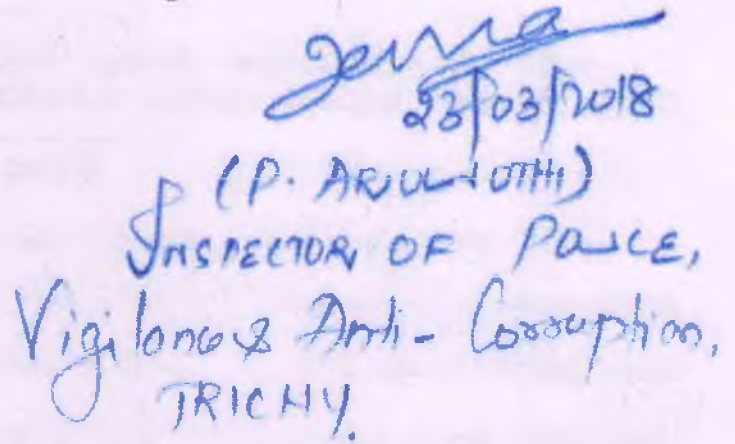 23/03/2018
(P. ARULJOTHI)
INSPECTOR OF POLICE,
Vigilance & Anti-Corruption,
TRICHY.